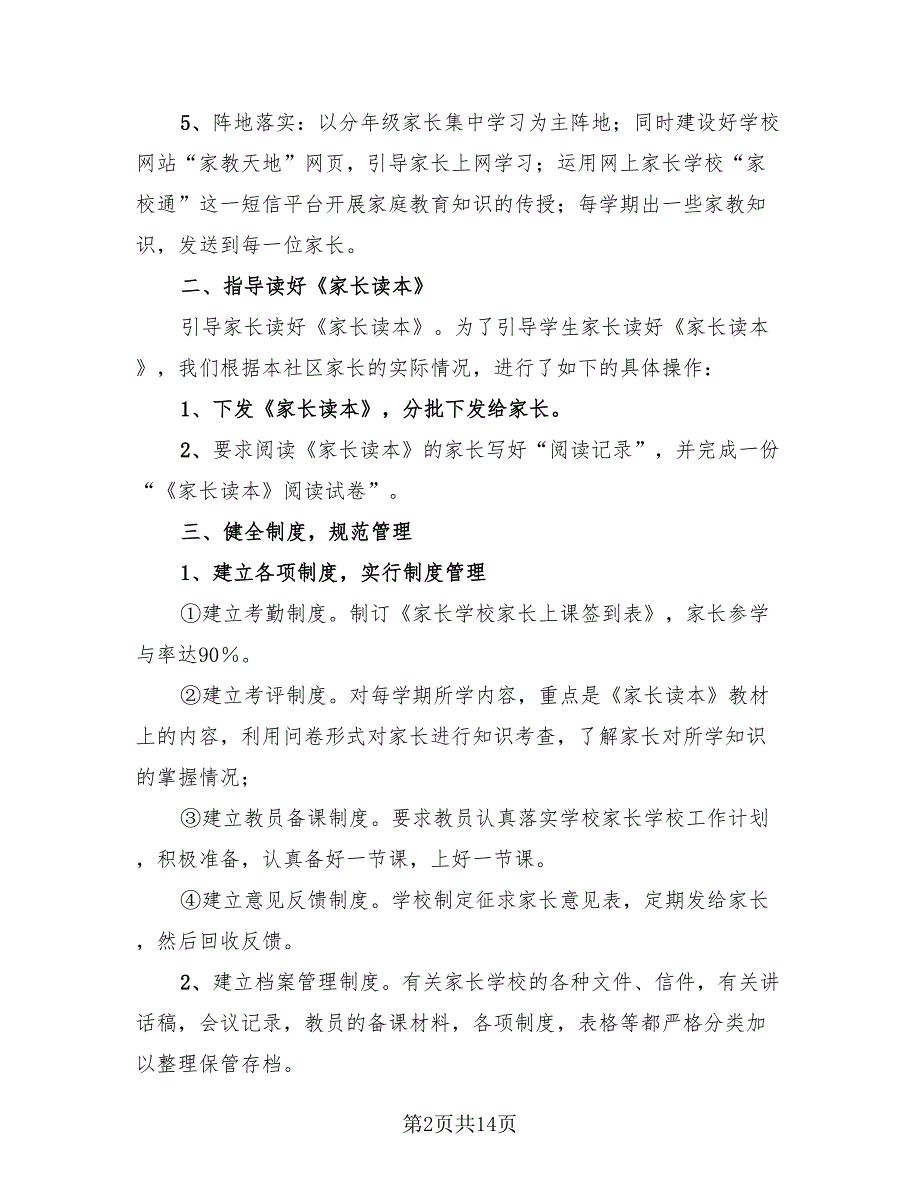 5、阵地落实：以分年级家长集中学习为主阵地；同时建设好学校
网站“家教天地”网页，引导家长上网学习；运用网上家长学校“家
校通”这一短信平台开展家庭教育知识的传授；每学期出一些家教知
识，发送到每一位家长。
二、指导读好《家长读本》
引导家长读好《家长读本》。为了引导学生家长读好《家长读本
》，我们根据本社区家长的实际情况，进行了如下的具体操作：
1、下发《家长读本》，分批下发给家长。
2、要求阅读《家长读本》的家长写好“阅读记录”，并完成一份
“《家长读本》阅读试卷”。
三、健全制度，规范管理
1、建立各项制度，实行制度管理
①建立考勤制度。制订《家长学校家长上课签到表》，家长参学
与率达90％。
②建立考评制度。对每学期所学内容，重点是《家长读本》教材
上的内容，利用问卷形式对家长进行知识考查，了解家长对所学知识
的掌握情况；
③建立教员备课制度。要求教员认真落实学校家长学校工作计划
，积极准备，认真备好一节课，上好一节课。
④建立意见反馈制度。学校制定征求家长意见表，定期发给家长
，然后回收反馈。
2、建立档案管理制度。有关家长学校的各种文件、信件，有关讲
话稿，会议记录，教员的备课材料，各项制度，表格等都严格分类加
以整理保管存档。
第2页共14页